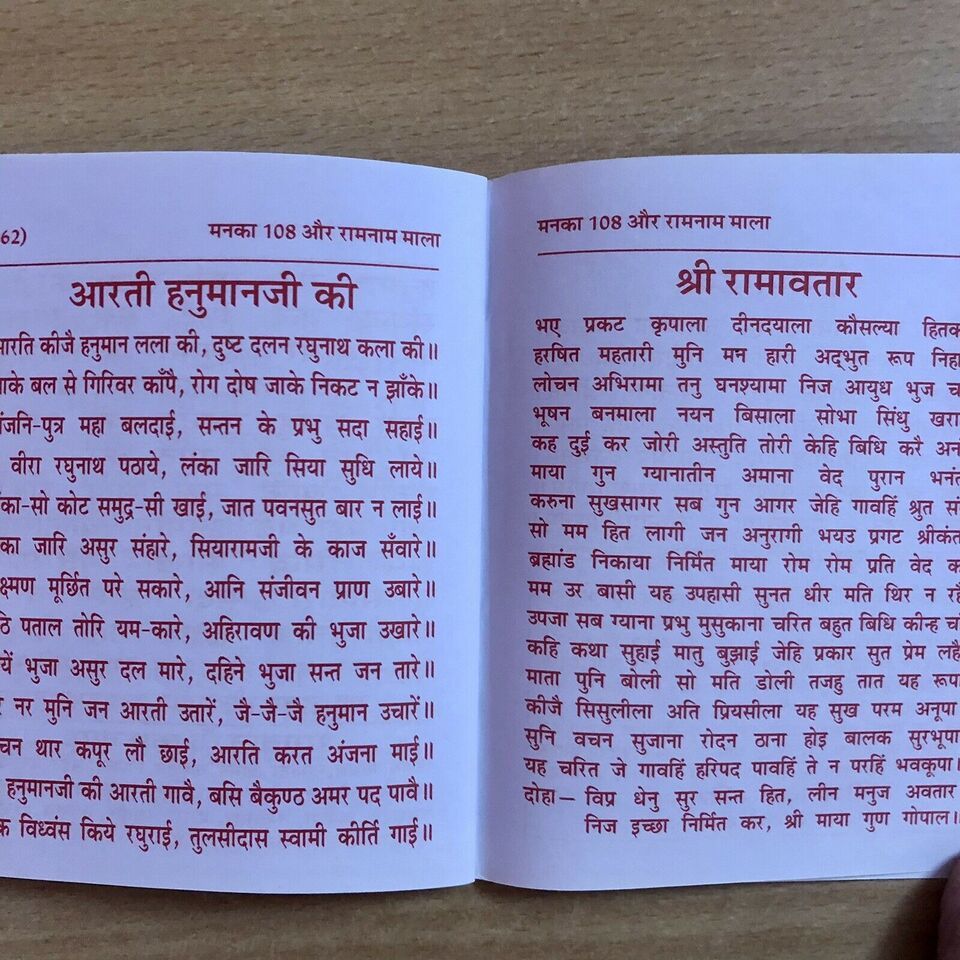 62) मनका 108 और रामनाम माला
आरती हनुमानजी की
आरति कीजै हनुमान लला की, दुष्ट दलन रघुनाथ कला की॥
ाके बल से गिरिवर काँपै, रोग दोष जाके निकट न झाँके॥
ंजनि-पुत्र महा बलदाई, सन्तन के प्रभु सदा सहाई॥
वीरा रघुनाथ पठाये, लंका जारि सिया सुधि लाये॥
ंका-सो कोट समुद्र-सी खाई, जात पवनसुत बार न लाई॥
का जारि असुर संहारे, सियारामजी के काज सँवारे॥
क्ष्मण मूर्छित परे सकारे, आनि संजीवन प्राण उबारे॥
ठि पताल तोरि यम-कारे, अहिरावण की भुजा उखारे॥
यें भुजा असुर दल मारे, दहिने भुजा सन्त जन तारे॥
र नर मुनि जन आरती उतारें, जै-जै-जै हनुमान उचारें॥
चन थार कपूर लौ छाई, आरति करत अंजना माई॥
हनुमानजी की आरती गावै, बसि बैकुण्ठ अमर पद पावै॥
क विध्वंस किये रघुराई, तुलसीदास स्वामी कीर्ति गाई॥
मनका 108 और रामनाम माला
श्री रामावतार
भए प्रकट कृपाला दीनदयाला कौसल्या हितक
हरषित महतारी मुनि मन हारी अद्भुत रूप निहा
लोचन अभिरामा तनु घनश्यामा निज आयुध भुज च
भूषन बनमाला नयन बिसाला सोभा सिंधु खरा
कह दुई कर जोरी अस्तुति तोरी केहि बिधि करै अनं
माया गुन ग्यानातीन अमाना वेद पुरान भनंत
करुना सुखसागर सब गुन आगर जेहि गावहिं श्रुत सं
सो मम हित लागी जन अनुरागी भयउ प्रगट श्रीकंत
ब्रह्मांड निकाया निर्मित माया रोम रोम प्रति वेद क
मम उर बासी यह उपहासी सुनत धीर मति थिर न रहै
उपजा सब ग्याना प्रभु मुसुकाना चरित बहुत बिधि कीन्ह च
कहि कथा सुहाई मातु बुझाई जेहि प्रकार सुत प्रेम लहै
माता पुनि बोली सो मति डोली तजहु तात यह रूपा
कीजै सिसुलीला अति प्रियसीला यह सुख परम अनूपा
सुनि वचन सुजाना रोदन ठाना होइ बालक सुरभूपा
यह चरित जे गावहिं हरिपद पावहिं ते न परहिं भवकूपा।
दोहा— विप्र धेनु सुर सन्त हित, लीन मनुज अवतार
निज इच्छा निर्मित कर, श्री माया गुण गोपाल॥